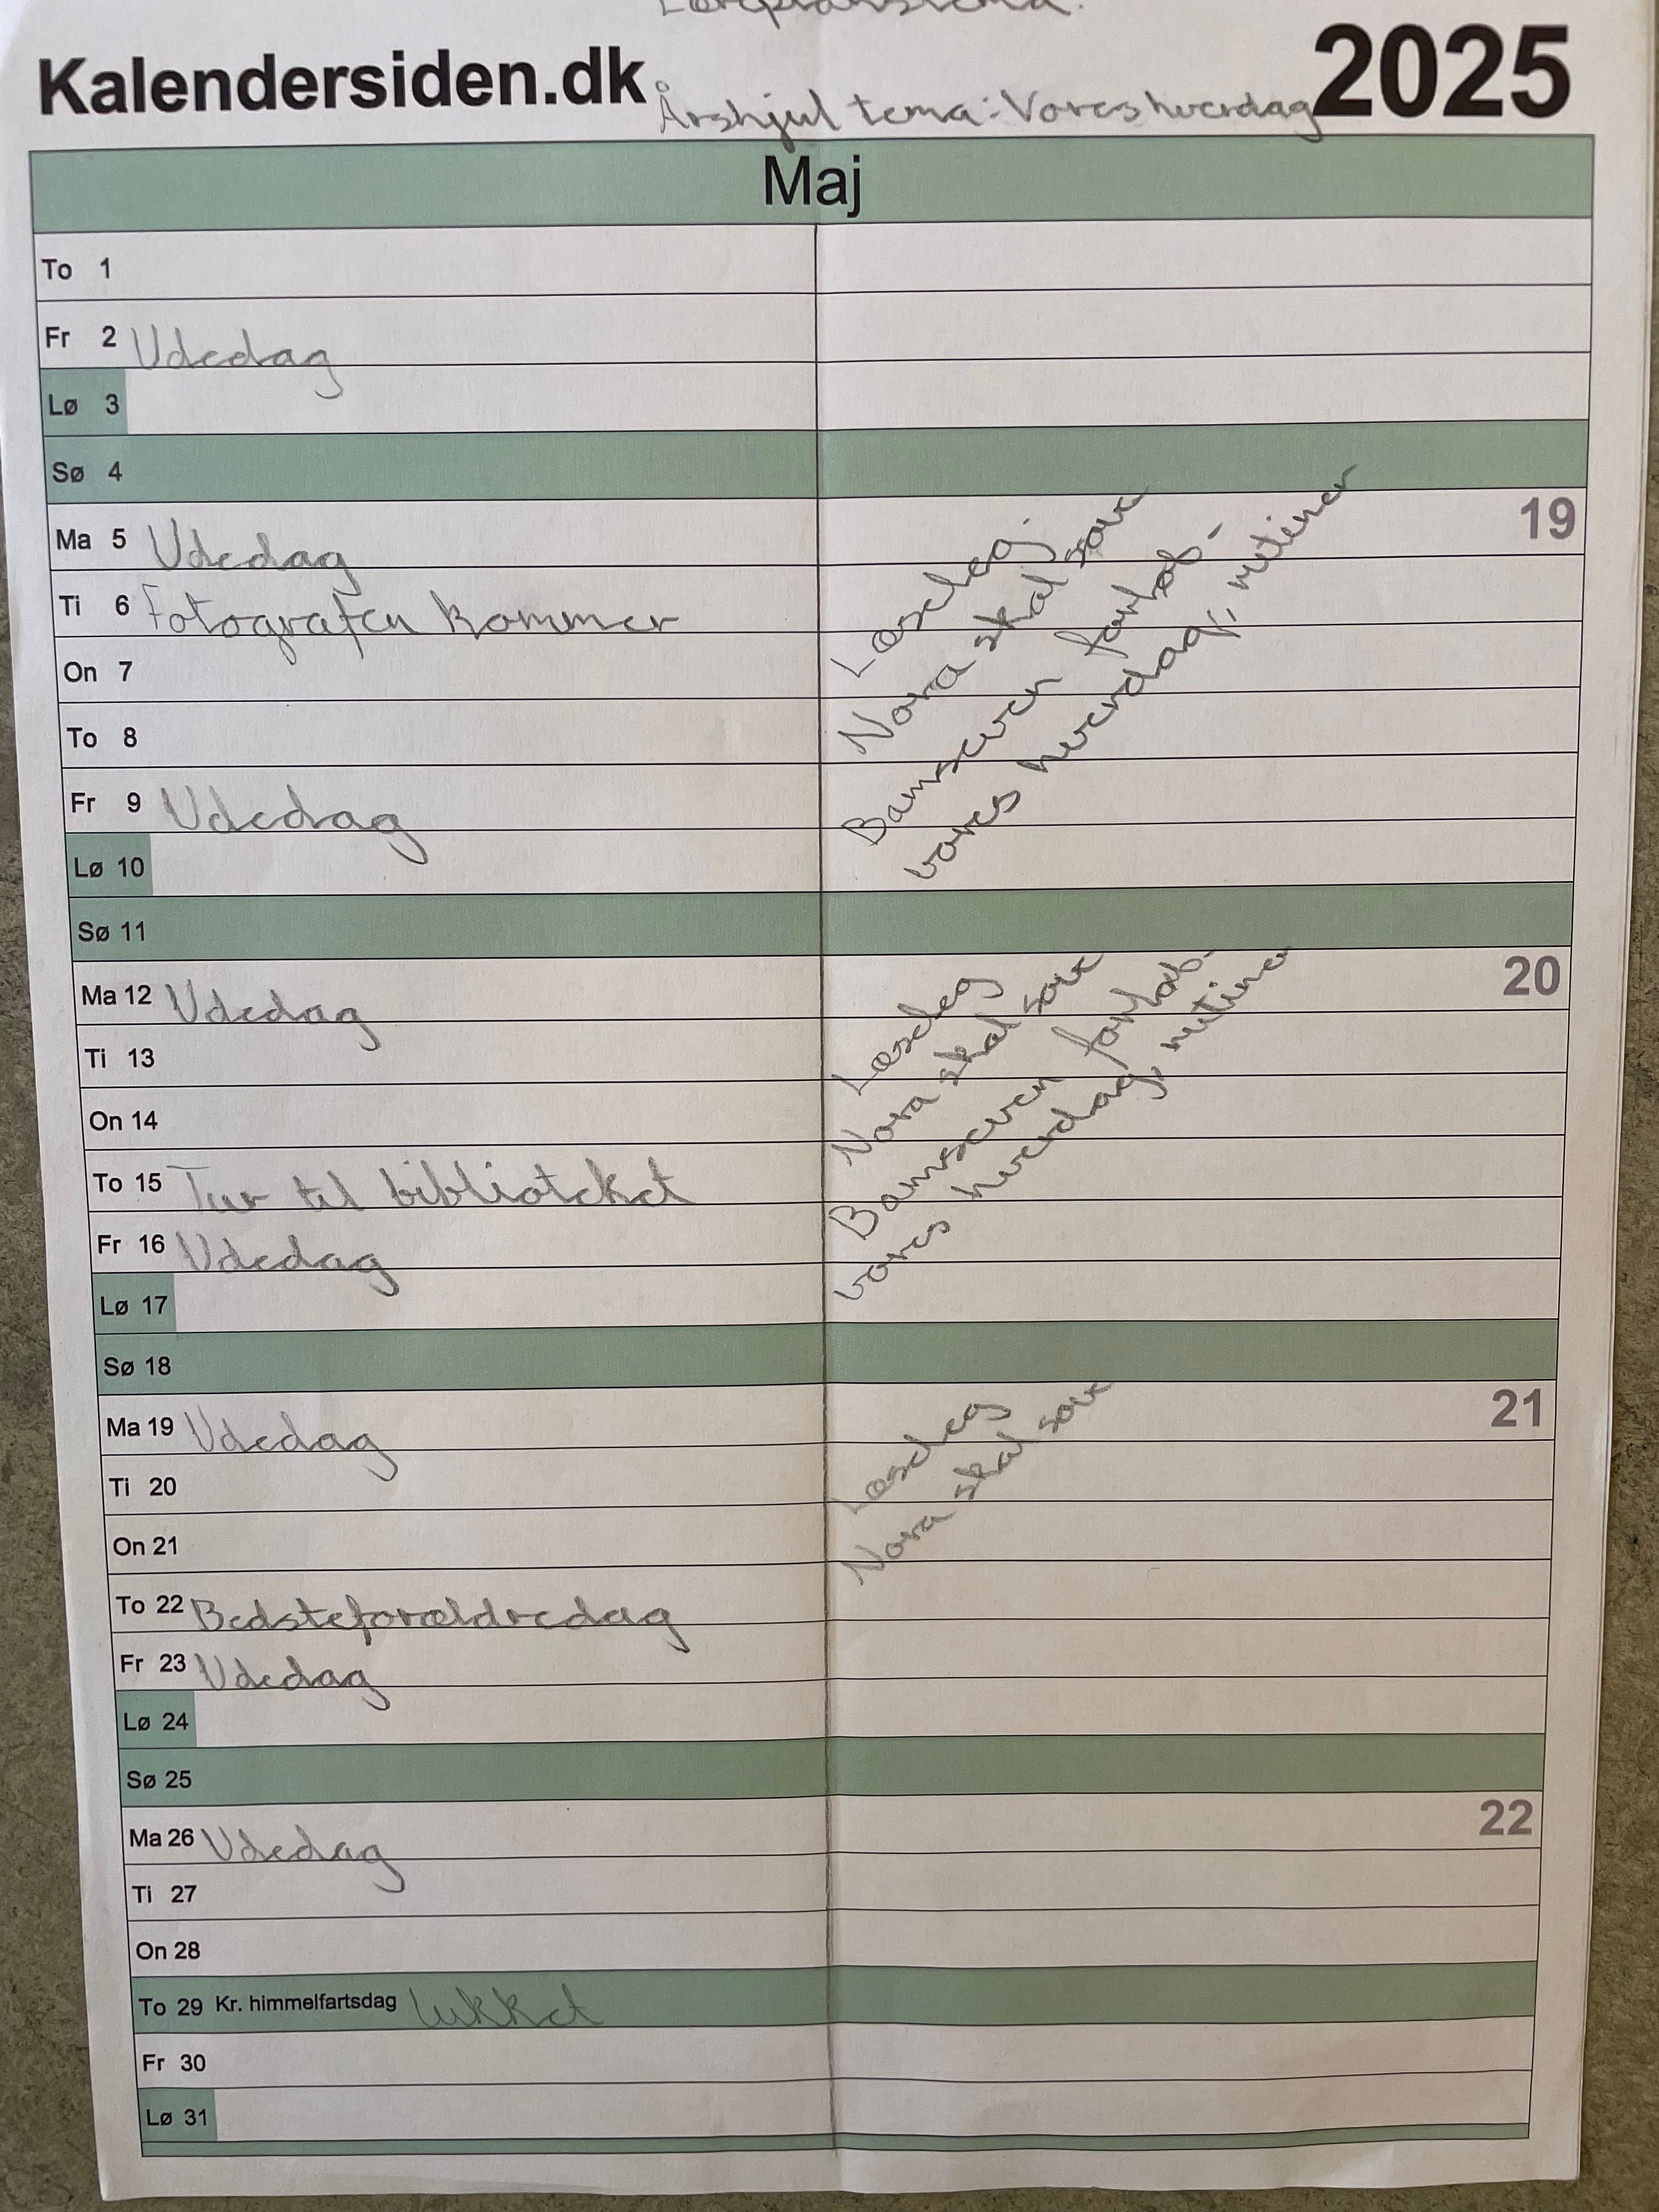 Læreplanstema:
Kalendersiden.dk
Årshjul tema: Vores hverdag
2025
Maj
To 1
Fr 2 Udedag
Lø 3
Sø 4
Ma 5 Udedag 19
Ti 6 Fotografen kommer
On 7
To 8
Fr 9 Udedag
Lø 10
Læseleg
Nora skal sove
Bamseven forløb-
vores hverdag, rutiner
Sø 11
Ma 12 Udedag 20
Ti 13
On 14
To 15 Tur til biblioteket
Fr 16 Udedag
Lø 17
Læseleg
Nora skal sove
Bamseven forløb-
vores hverdag, rutiner
Sø 18
Ma 19 Udedag 21
Ti 20
On 21
Læseleg
Nora skal sove
To 22 Bedsteforældredag
Fr 23 Udedag
Lø 24
Sø 25
Ma 26 Udedag 22
Ti 27
On 28
To 29 Kr. himmelfartsdag lukket
Fr 30
Lø 31